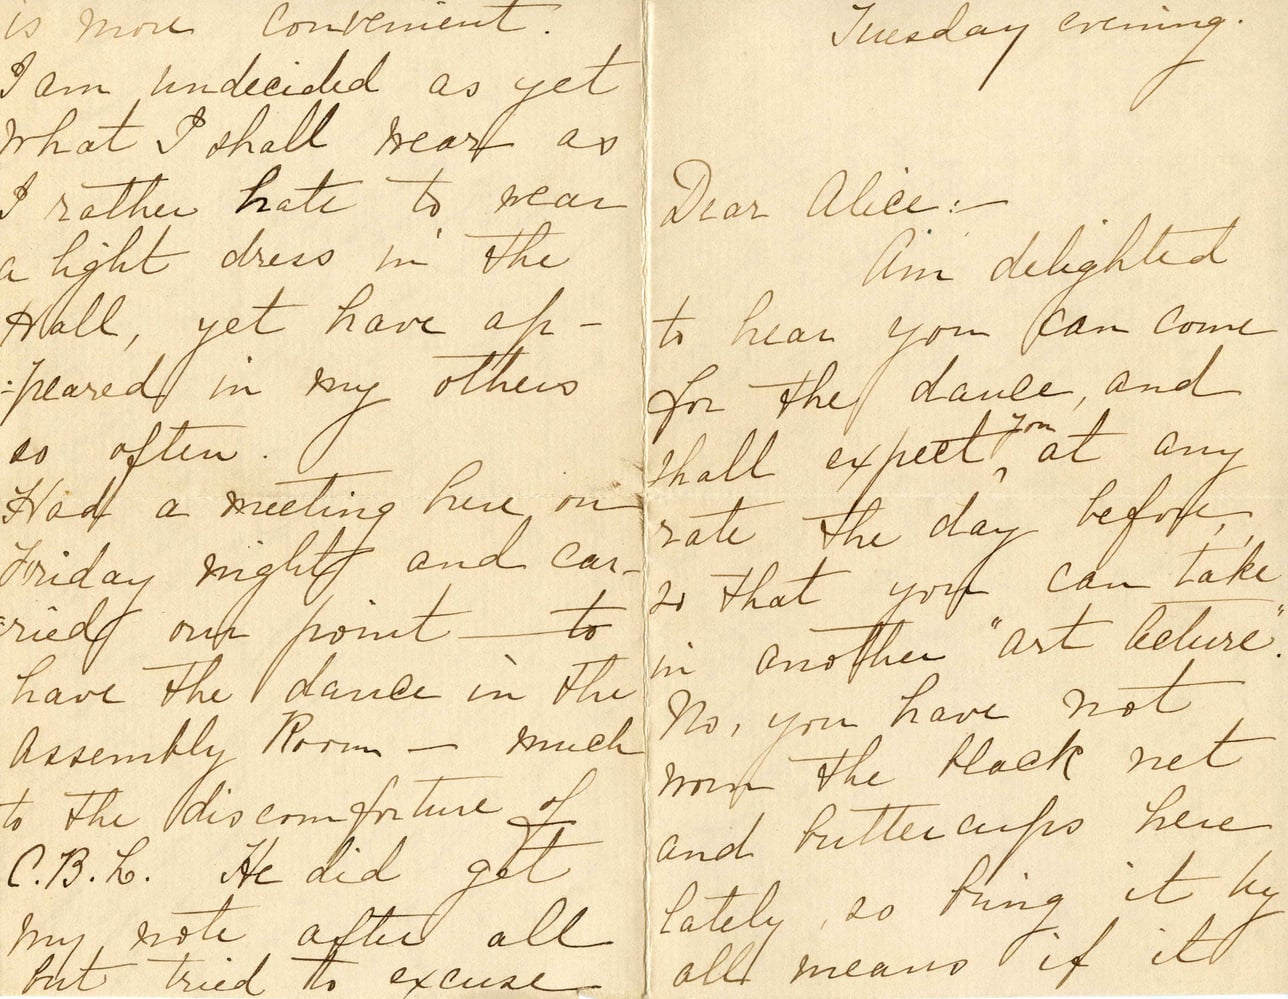 Tuesday evening.
Dear Alice:—
Am delighted
to hear you can come
for the dance, and
shall expect you at any
rate the day before,
so that you can take
in another "art lecture".
No, you have not
worn the black net
and buttercups here
lately, so bring it by
all means if it
is more convenient.
I am undecided as yet
what I shall wear as
I rather hate to wear
a light dress in the
Hall, yet have ap-
-peared in my others
so often.
Had a meeting here on
Friday night and car-
-ried our point — to
have the dance in the
Assembly Room — much
to the discomforture of
C.B.L. He did get
my note after all
but tried to excuse